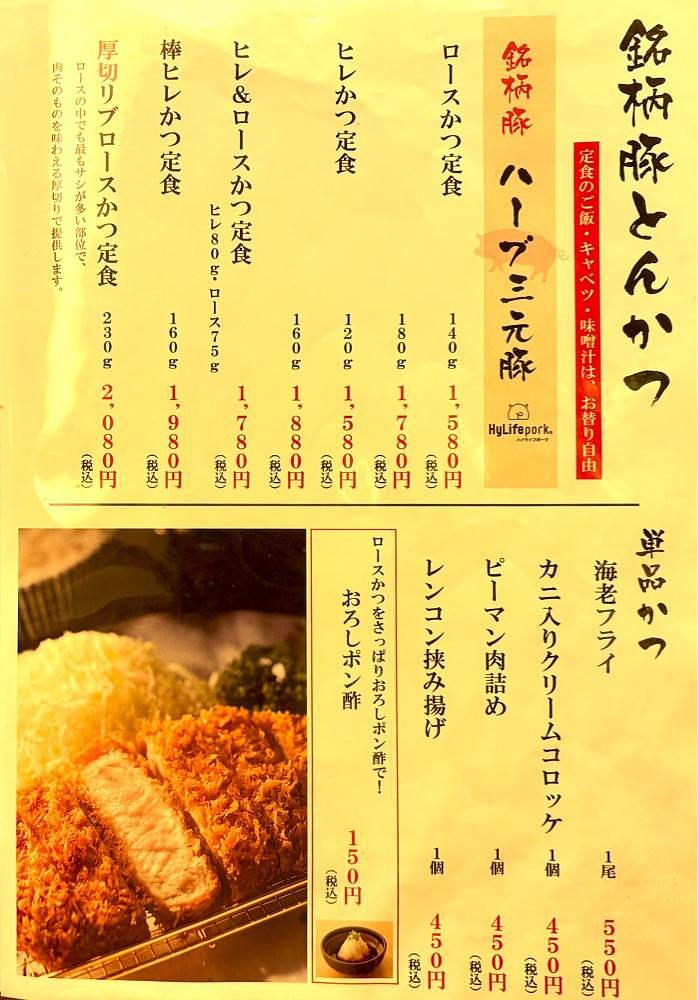 銘柄豚とんかつ
定食のご飯・キャベツ・味噌汁は、お替り自由
銘柄豚 ハーブ三元豚
HyLifepork®
ハイライフポーク
ロースかつ定食 140g 1,580円（税込）
180g 1,780円（税込）
ヒレかつ定食 120g 1,580円（税込）
160g 1,880円（税込）
ヒレ&ロースかつ定食 1,780円（税込）
ヒレ80g・ロース75g
棒ヒレかつ定食 160g 1,980円（税込）
厚切リブロースかつ定食 230g 2,080円（税込）
ロースの中でも最もサシが多い部位で、
肉そのものを味わえる厚切りで提供します。
単品かつ
海老フライ 1尾 550円（税込）
カニ入りクリームコロッケ 1個 450円（税込）
ピーマン肉詰め 1個 450円（税込）
レンコン挟み揚げ 1個 450円（税込）
ロースかつをさっぱりおろしポン酢で！
おろしポン酢 150円（税込）